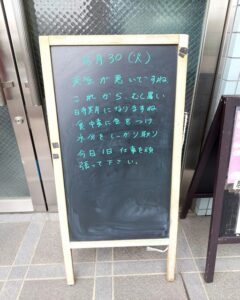 6月30(火)
天気が悪いですね
これから、むし暑い
時期になりますね
食中毒に気をつけ
水分をしっかり取り
今日1日仕事を頑
張って下さい。